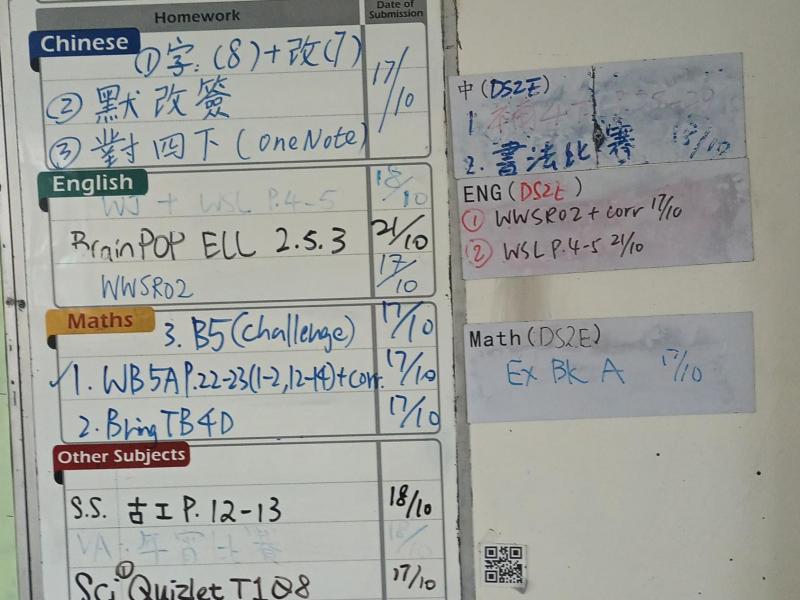 Homework
Date of Submission
Chinese
①字:(8)+改(7) 17/10
②默改簽
③對四下(oneNote)
English
WJ + WSL P.4-5 18/10
BrainPOP ELL 2.5.3 21/10
WWSR02 17/10
Maths
3. B5(Challenge) 17/10
✓1. WB5A P.22-23(1-2,12-14)+corr. 17/10
2. Bring TB4D 17/10
Other Subjects
S.S. 古工P. 12-13 18/10
VA: 年宵比賽 18/
Sci ①Quizlet T1Q8 17/10
中(DS2E)
1. 補4下
2. 書法比賽 18/10
ENG(DS2E)
① WWSR02 + corr 17/10
② WSL P.4-5 21/10
Math(DS2E)
Ex Bk A 17/10